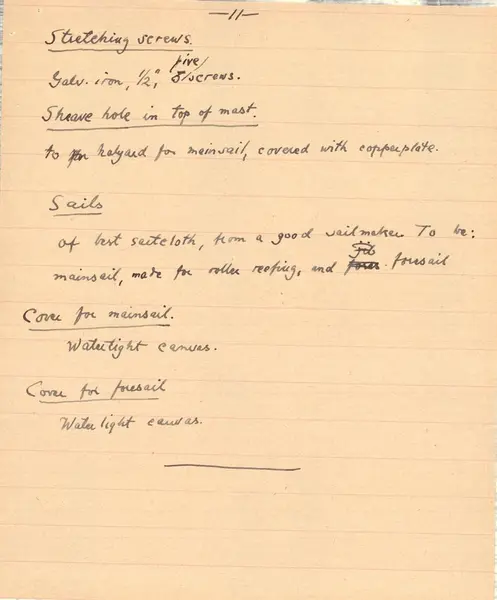 —11—
Stretching screws.
Galv. iron, 1/2", five/ 5/screws.
Sheave hole in top of mast.
to halyard for mainsail, covered with copperplate.
Sails
of best sailcloth, from a good sailmaker To be:
mainsail, made for roller reefing, and jib foresail
Cover for mainsail.
Watertight canvas.
Cover for foresail
Watertight canvas.